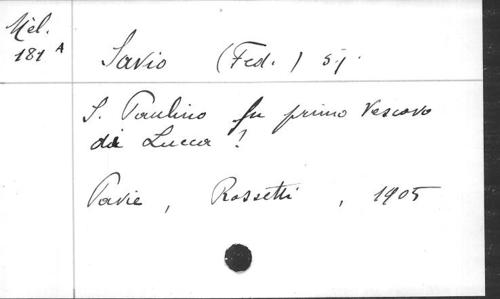 Mél.
181 A
Savio (Fed.) s.j.
S. Paulino fu primo Vescovo
di Lucca ?
Pavie, Rossetti, 1905